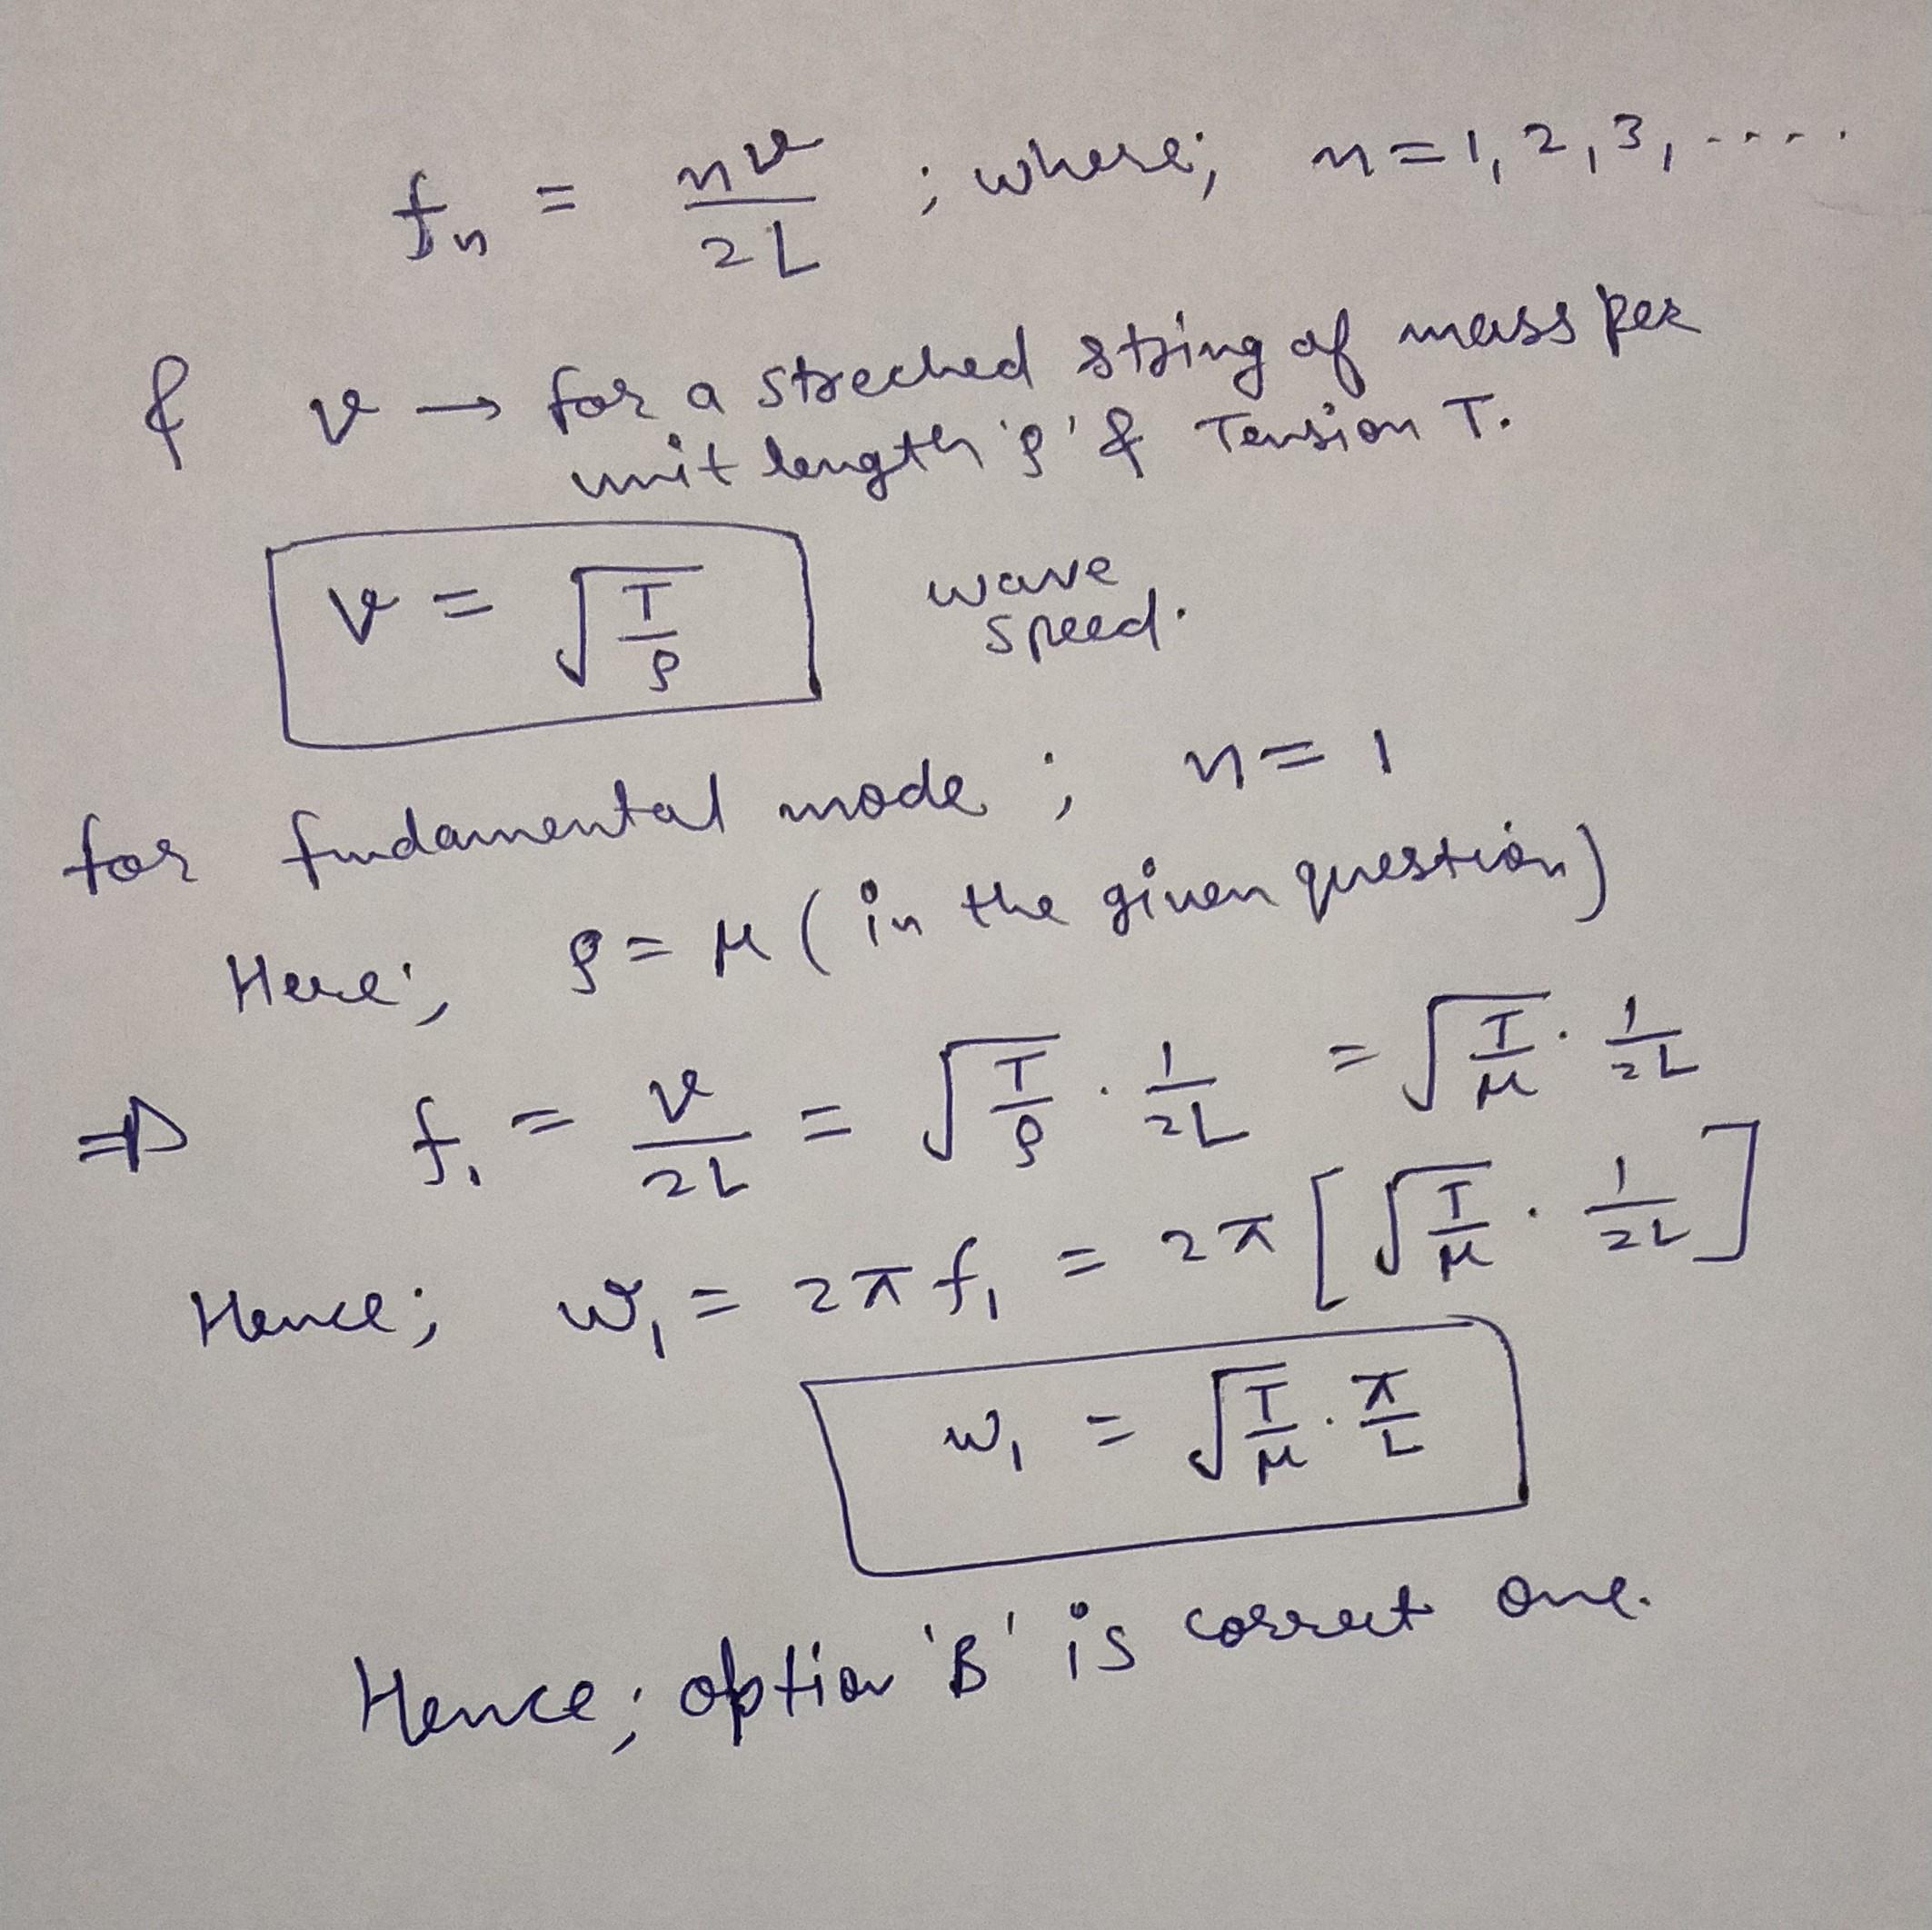 fₙ = nv/2L ; where; n=1,2,3,.....
& v → for a streched string of mass per
unit length 'ρ' & Tension T.
v = √(T/ρ) wave speed.
for fundamental mode ; n=1
Here; ρ = μ (in the given question)
⇒ f₁ = v/2L = √(T/ρ) · 1/2L = √(T/μ) · 1/2L
Hence; ω₁ = 2πf₁ = 2π[√(T/μ) · 1/2L]
ω₁ = √(T/μ) · π/L
Hence; option 'B' is correct one.